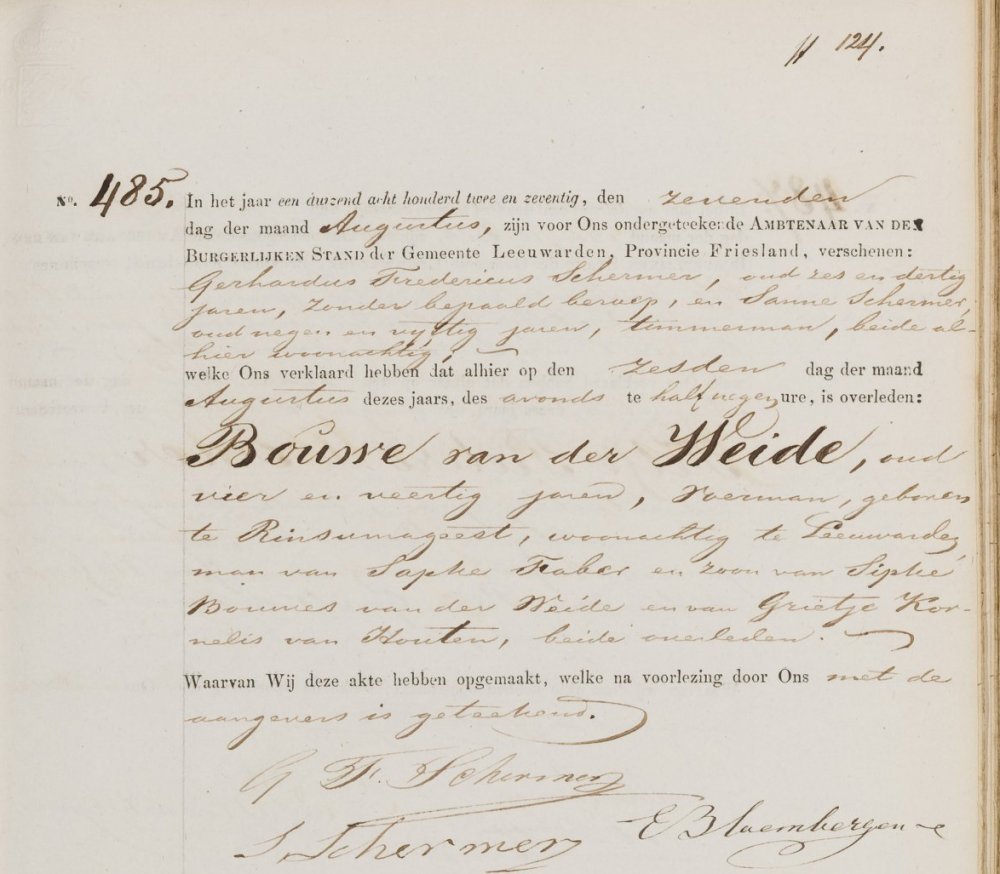 124.
No. 485. In het jaar een duizend acht honderd twee en zeventig, den zevenden
dag der maand Augustus, zijn voor Ons ondergeteekende AMBTENAAR VAN DEN
BURGERLIJKEN STAND der Gemeente Leeuwarden, Provincie Friesland, verschenen:
Gerhardus Fredericus Schermer, oud zes en dertig
jaren, zonder bepaald beroep, en Sanne Schermer,
oud negen en vijftig jaren, timmerman, beide al-
hier woonachtig,
welke Ons verklaard hebben dat alhier op den zesden dag der maand
Augustus dezes jaars, des avonds te half negen ure, is overleden:
Bouwe van der Weide, oud
vier en veertig jaren, voerman, geboren
te Rinsumageest, woonachtig te Leeuwarden,
man van Sapke Faber en zoon van Sipke
Bouwes van der Weide en van Grietje Kor-
nelis van Houten, beide overleden.
Waarvan Wij deze akte hebben opgemaakt, welke na voorlezing door Ons met de
aangevers is geteekend.
G F. Schermer
S. Schermer
E Bloembergen